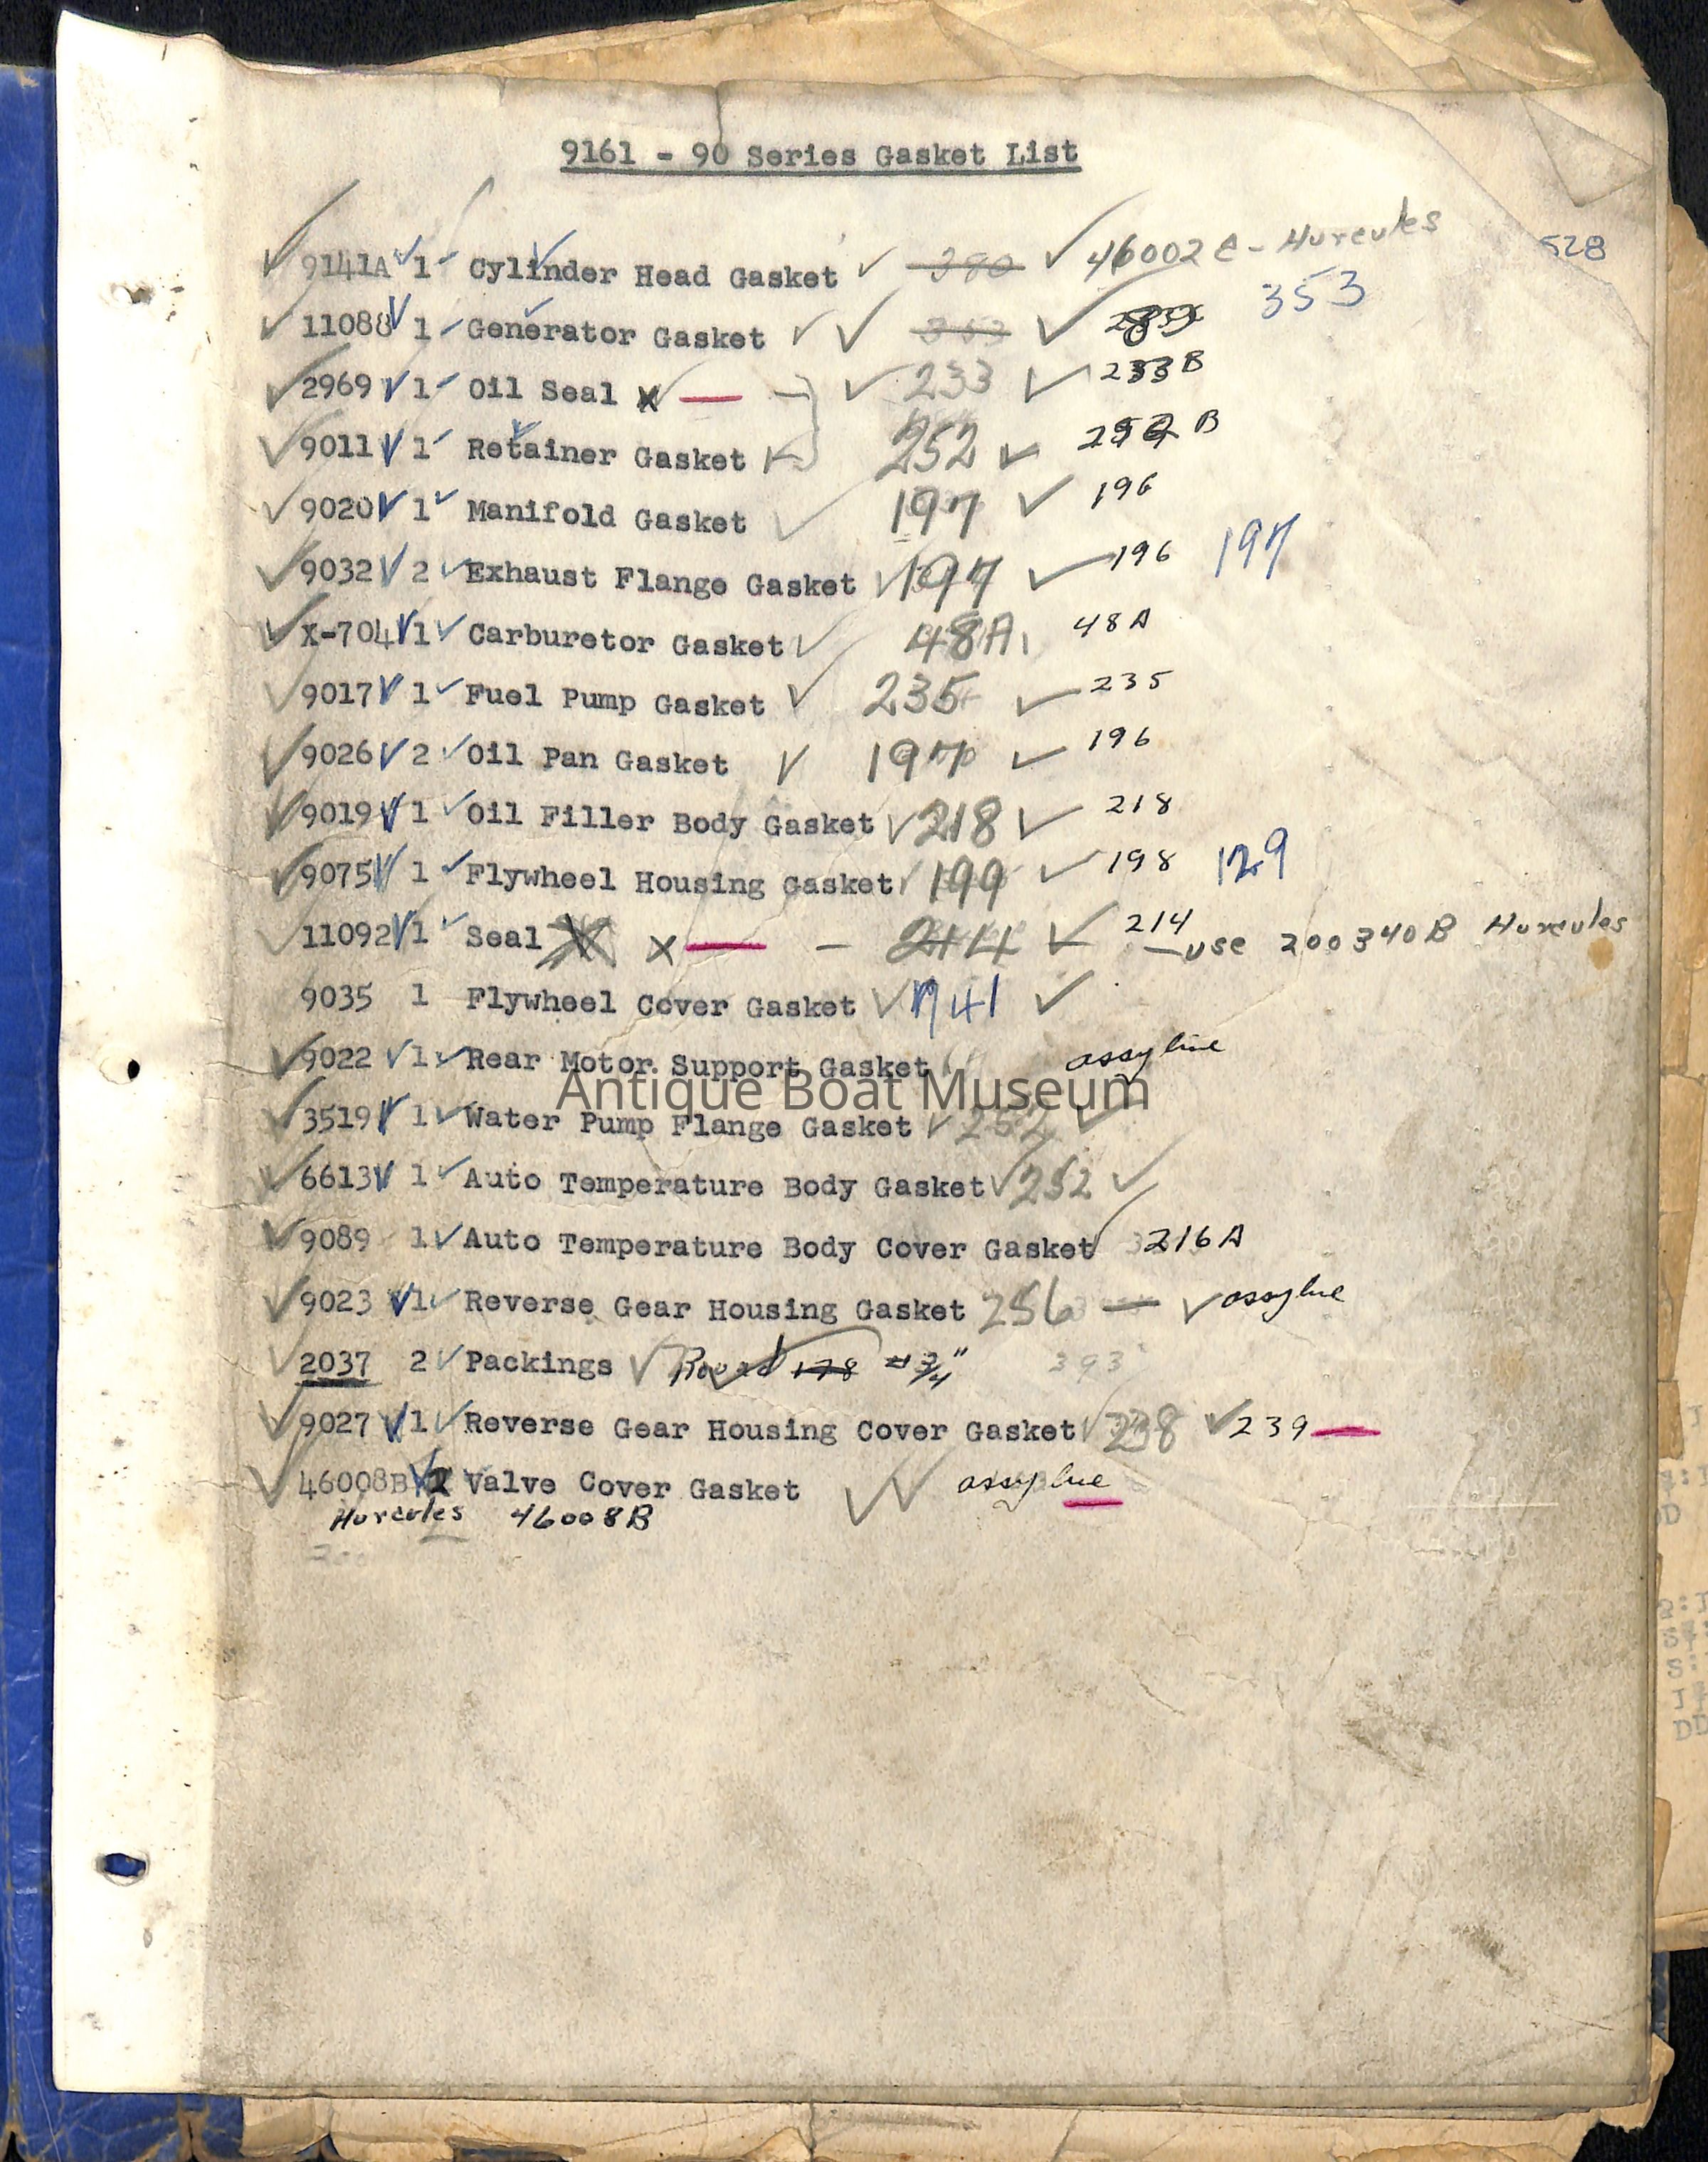 9161 - 90 Series Gasket List
528
✓ 9141A ✓ 1 ✓ Cylinder Head Gasket ✓ 390 ✓ 46002 C - Hurcules
✓ 11088 ✓ 1 ✓ Generator Gasket ✓ ✓ ✓ 353
✓ 2969 ✓ 1 ✓ Oil Seal x — ✓ 233 ✓ 233 B
✓ 9011 ✓ 1 ✓ Retainer Gasket ✓ 252 ✓ 252 B
✓ 9020 ✓ 1 ✓ Manifold Gasket ✓ 197 ✓ 196
✓ 9032 ✓ 2 ✓ Exhaust Flange Gasket ✓ 197 ✓ 196 197
✓ X-704 ✓ 1 ✓ Carburetor Gasket ✓ 48A 48A
✓ 9017 ✓ 1 ✓ Fuel Pump Gasket ✓ 235 ✓ 235
✓ 9026 ✓ 2 ✓ Oil Pan Gasket ✓ 197 ✓ 196
✓ 9019 ✓ 1 ✓ Oil Filler Body Gasket ✓ 218 ✓ 218
✓ 9075 ✓ 1 ✓ Flywheel Housing Gasket ✓ 199 ✓ 198 129
✓ 11092 ✓ 1 ✓ Seal x — - 214 ✓ 214 — use 200340B Hurcules
9035 1 Flywheel Cover Gasket ✓ 1941 ✓
✓ 9022 ✓ 1 ✓ Rear Motor Support Gasket assy line
Antique Boat Museum
✓ 3519 ✓ 1 ✓ Water Pump Flange Gasket ✓ 252 ✓
✓ 6613 ✓ 1 ✓ Auto Temperature Body Gasket ✓ 252 ✓
✓ 9089 1 ✓ Auto Temperature Body Cover Gasket ✓ 216A
✓ 9023 ✓ 1 ✓ Reverse Gear Housing Gasket 256 — ✓ assy line
✓ 2037 2 ✓ Packings ✓ Round 178 3/4" 393
✓ 9027 ✓ 1 ✓ Reverse Gear Housing Cover Gasket ✓ 238 ✓ 239 —
✓ 46008B ✓ Valve Cover Gasket ✓ ✓ assy line
Hurcules 46008B